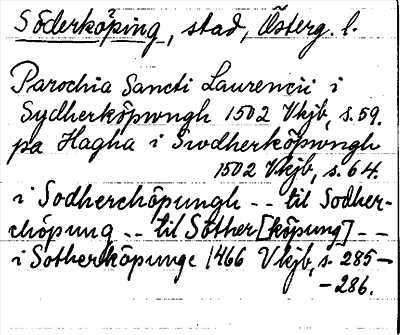 Söderköping, stad, Österg. l.
Parochia Sancti Laurencii i
Sydherköpwngh 1502 Vkjb, s. 59.
pa Hagha i Swdherköpwngh
1502 Vkjb, s. 64.
i Sodherchöpungh -- til Sodher-
chöpung -- til Söther[köpung] --
i Sotherköpunge 1466 Vkjb, s. 285-
-286.